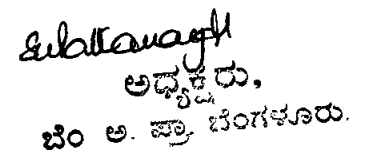 ಅಧ್ಯಕ್ಷರು,
ಬೆಂ ಅ. ಪ್ರಾ. ಬೆಂಗಳೂರು.